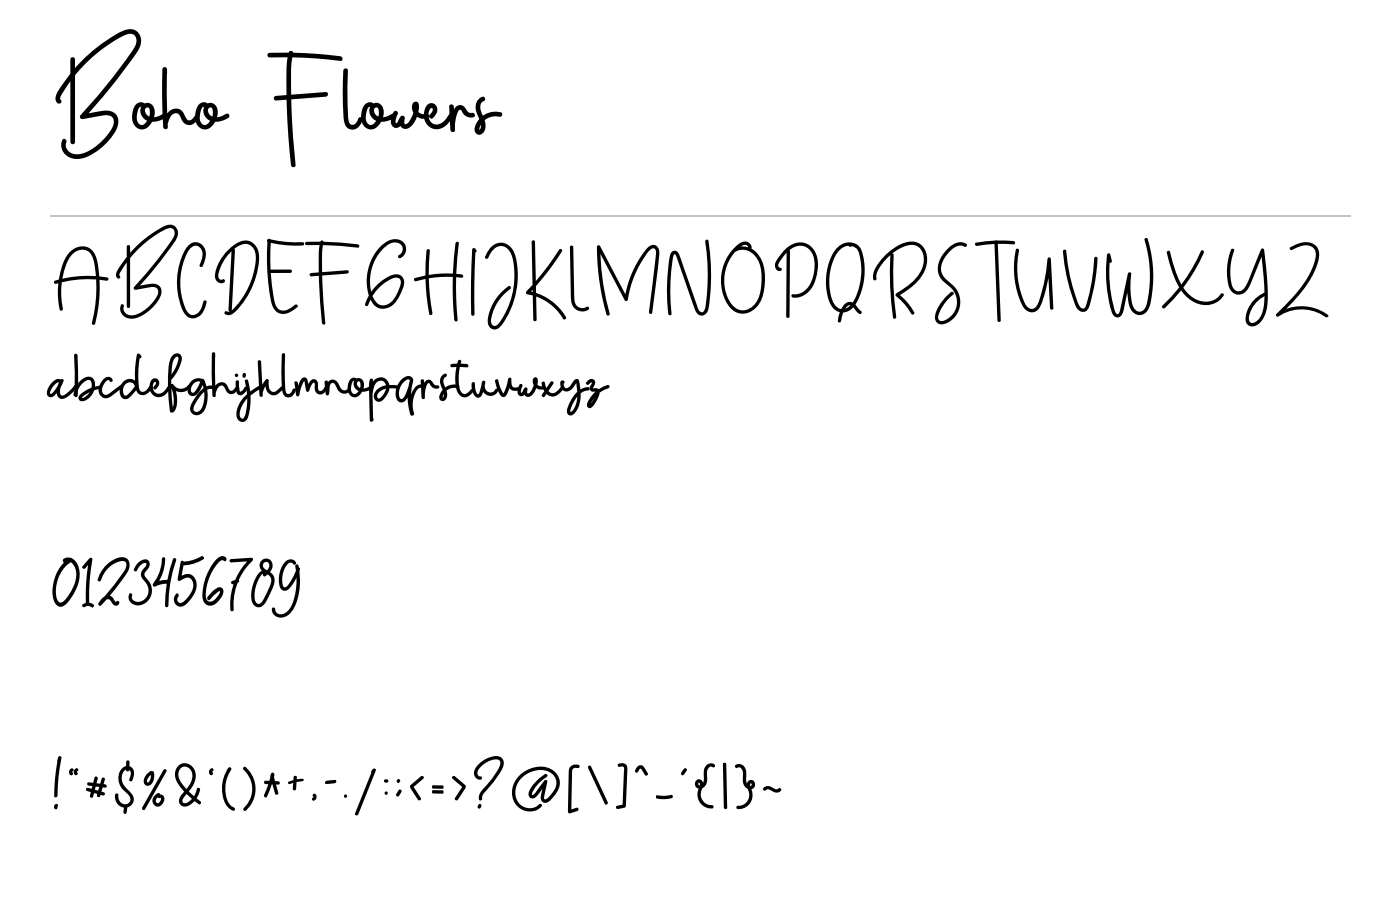 Boho Flowers
ABCDEFGHIJKLMNOPQRSTUVWXYZ
abcdefghijklmnopqrstuvwxyz
0123456789
!"#$%&'()*+,-./:;<=>?@[\]^_`{|}~